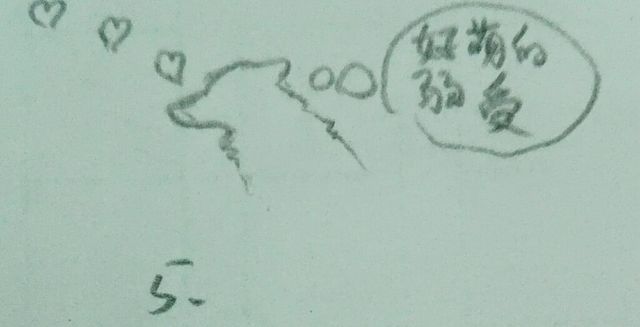 好萌的
弱受
5.